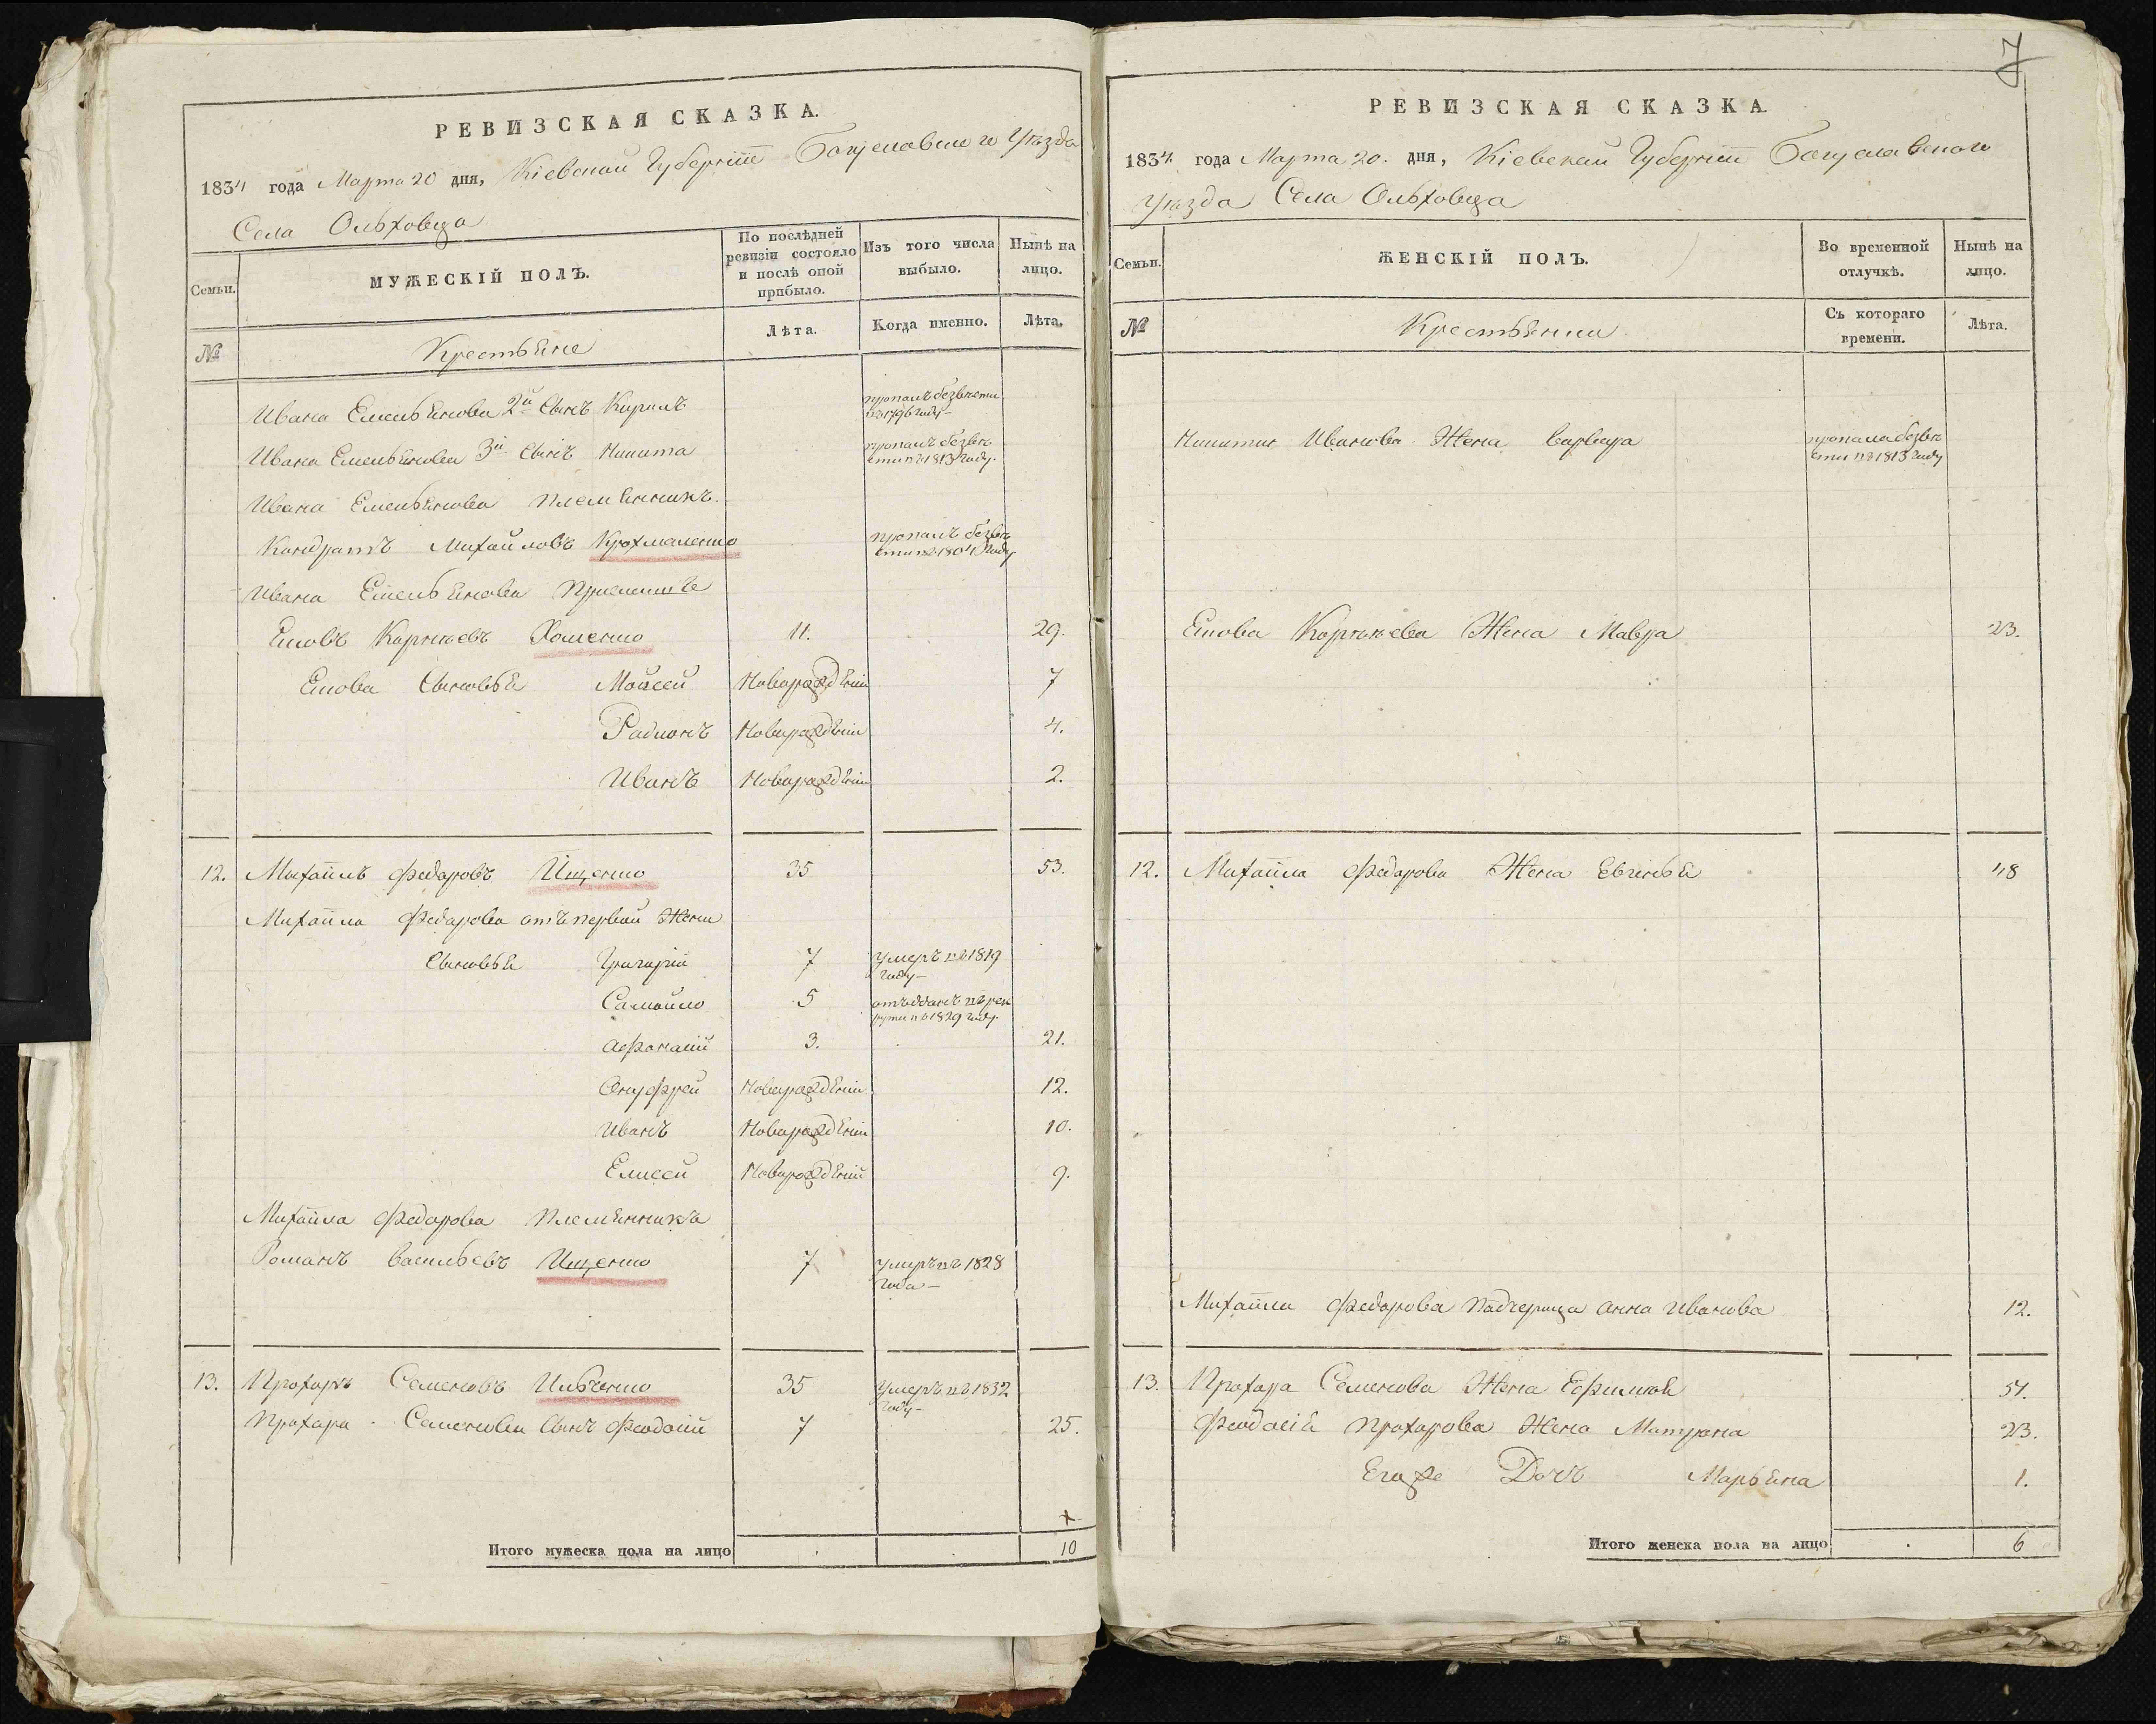 РЕВИЗСКАЯ СКАЗКА.
1834 года Марта 20 дня, Кіевской Губерніи Богуславского Уѣзда
Села Ольховца
Семьи.
МУЖЕСКІЙ ПОЛЪ.
По послѣдней ревизіи состояло и послѣ оной прибыло.
Изъ того числа выбыло.
Нынѣ на лицо.
№
Крестьяне
Лѣта.
Когда именно.
Лѣта.
Ивана Емельянова 2й Сынъ Кирилъ пропалъ безвѣсти
въ 1796 году
Ивана Емельянова 3й Сынъ Никита пропалъ безвѣ
сти въ 1813 году.
Ивана Емельянова племянникъ
Кондратъ Михайловъ Крохмаленко пропалъ безвѣ
сти въ 1804 году
Ивана Емельянова
Корнѣевъ Хоменко 11. 29.
Сыновья Мойсей Новорожденій 7
Радионъ Новорожденій 4.
Иванъ Новорожденій 2.
12. Михаилъ Федоровъ Ищенко 35 53.
Михаила Федорова отъ первой Жены
Сыновья Григорій 7 умеръ въ 1819
году
Самойло 5 отъданъ въ рек
руты въ 1829 году.
Афонасій 3. 21.
Онуфрей Новорожденій 12.
Иванъ Новорожденій 10.
Елисей Новорожденій 9.
Михаила Федорова племянника
Романъ Васильевъ Ищенко 7 умеръ въ 1828
года
13. Прохоръ Семеновъ Ильченко 35 умеръ въ 1832
году
Прохора Семенова Сынъ Феодосій 7 25.
Итого мужеска пола на лицо 10
7
РЕВИЗСКАЯ СКАЗКА.
1834 года Марта 20. дня, Кіевской Губерніи Богуславского
Уѣзда Села Ольховца
Семьи.
ЖЕНСКІЙ ПОЛЪ.
Во временной отлучкѣ.
Нынѣ на лицо.
№
Крестьянки
Съ котораго времени.
Лѣта.
Никиты Иванова Жена Варвара пропала безвѣ
сти въ 1813 году
Корнѣева Жена Мавра 23.
12. Михаила Федорова Жена Евгенья 48
Михаила Федорова падчерица Анна Иванова 12.
13. Прохора Семенова Жена Ефимия 51.
Феодосія Прохорова Жена Матрона 23.
Егоже Дочь Марьяна 1.
Итого женска пола на лицо 6